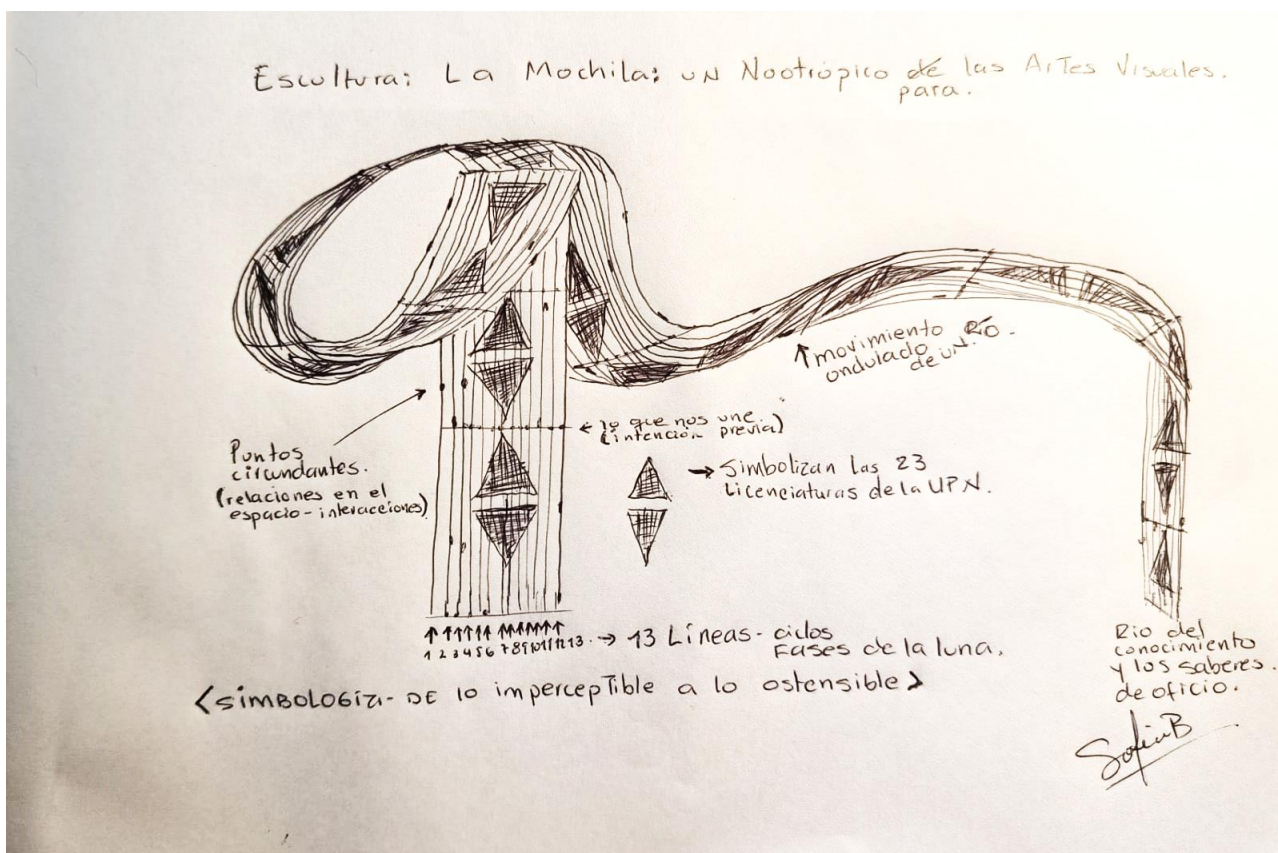 Escultura: La Mochila: un Nootrópico de las Artes Visuales.
para.
↑ movimiento
ondulado
de un Río.
← lo que nos une.
(intención previa)
Puntos
circundantes.
(relaciones en el
espacio-interacciones)
→ Simbolizan las 23
Licenciaturas de la UPN.
1 2 3 4 5 6 7 8 9 10 11 12 13. → 13 Líneas - ciclos
Fases de la luna.
Rio del
conocimiento
y los saberes.
de oficio.
<SIMBOLOGIA- DE lo imperceptible a lo ostensible>
SofiaB